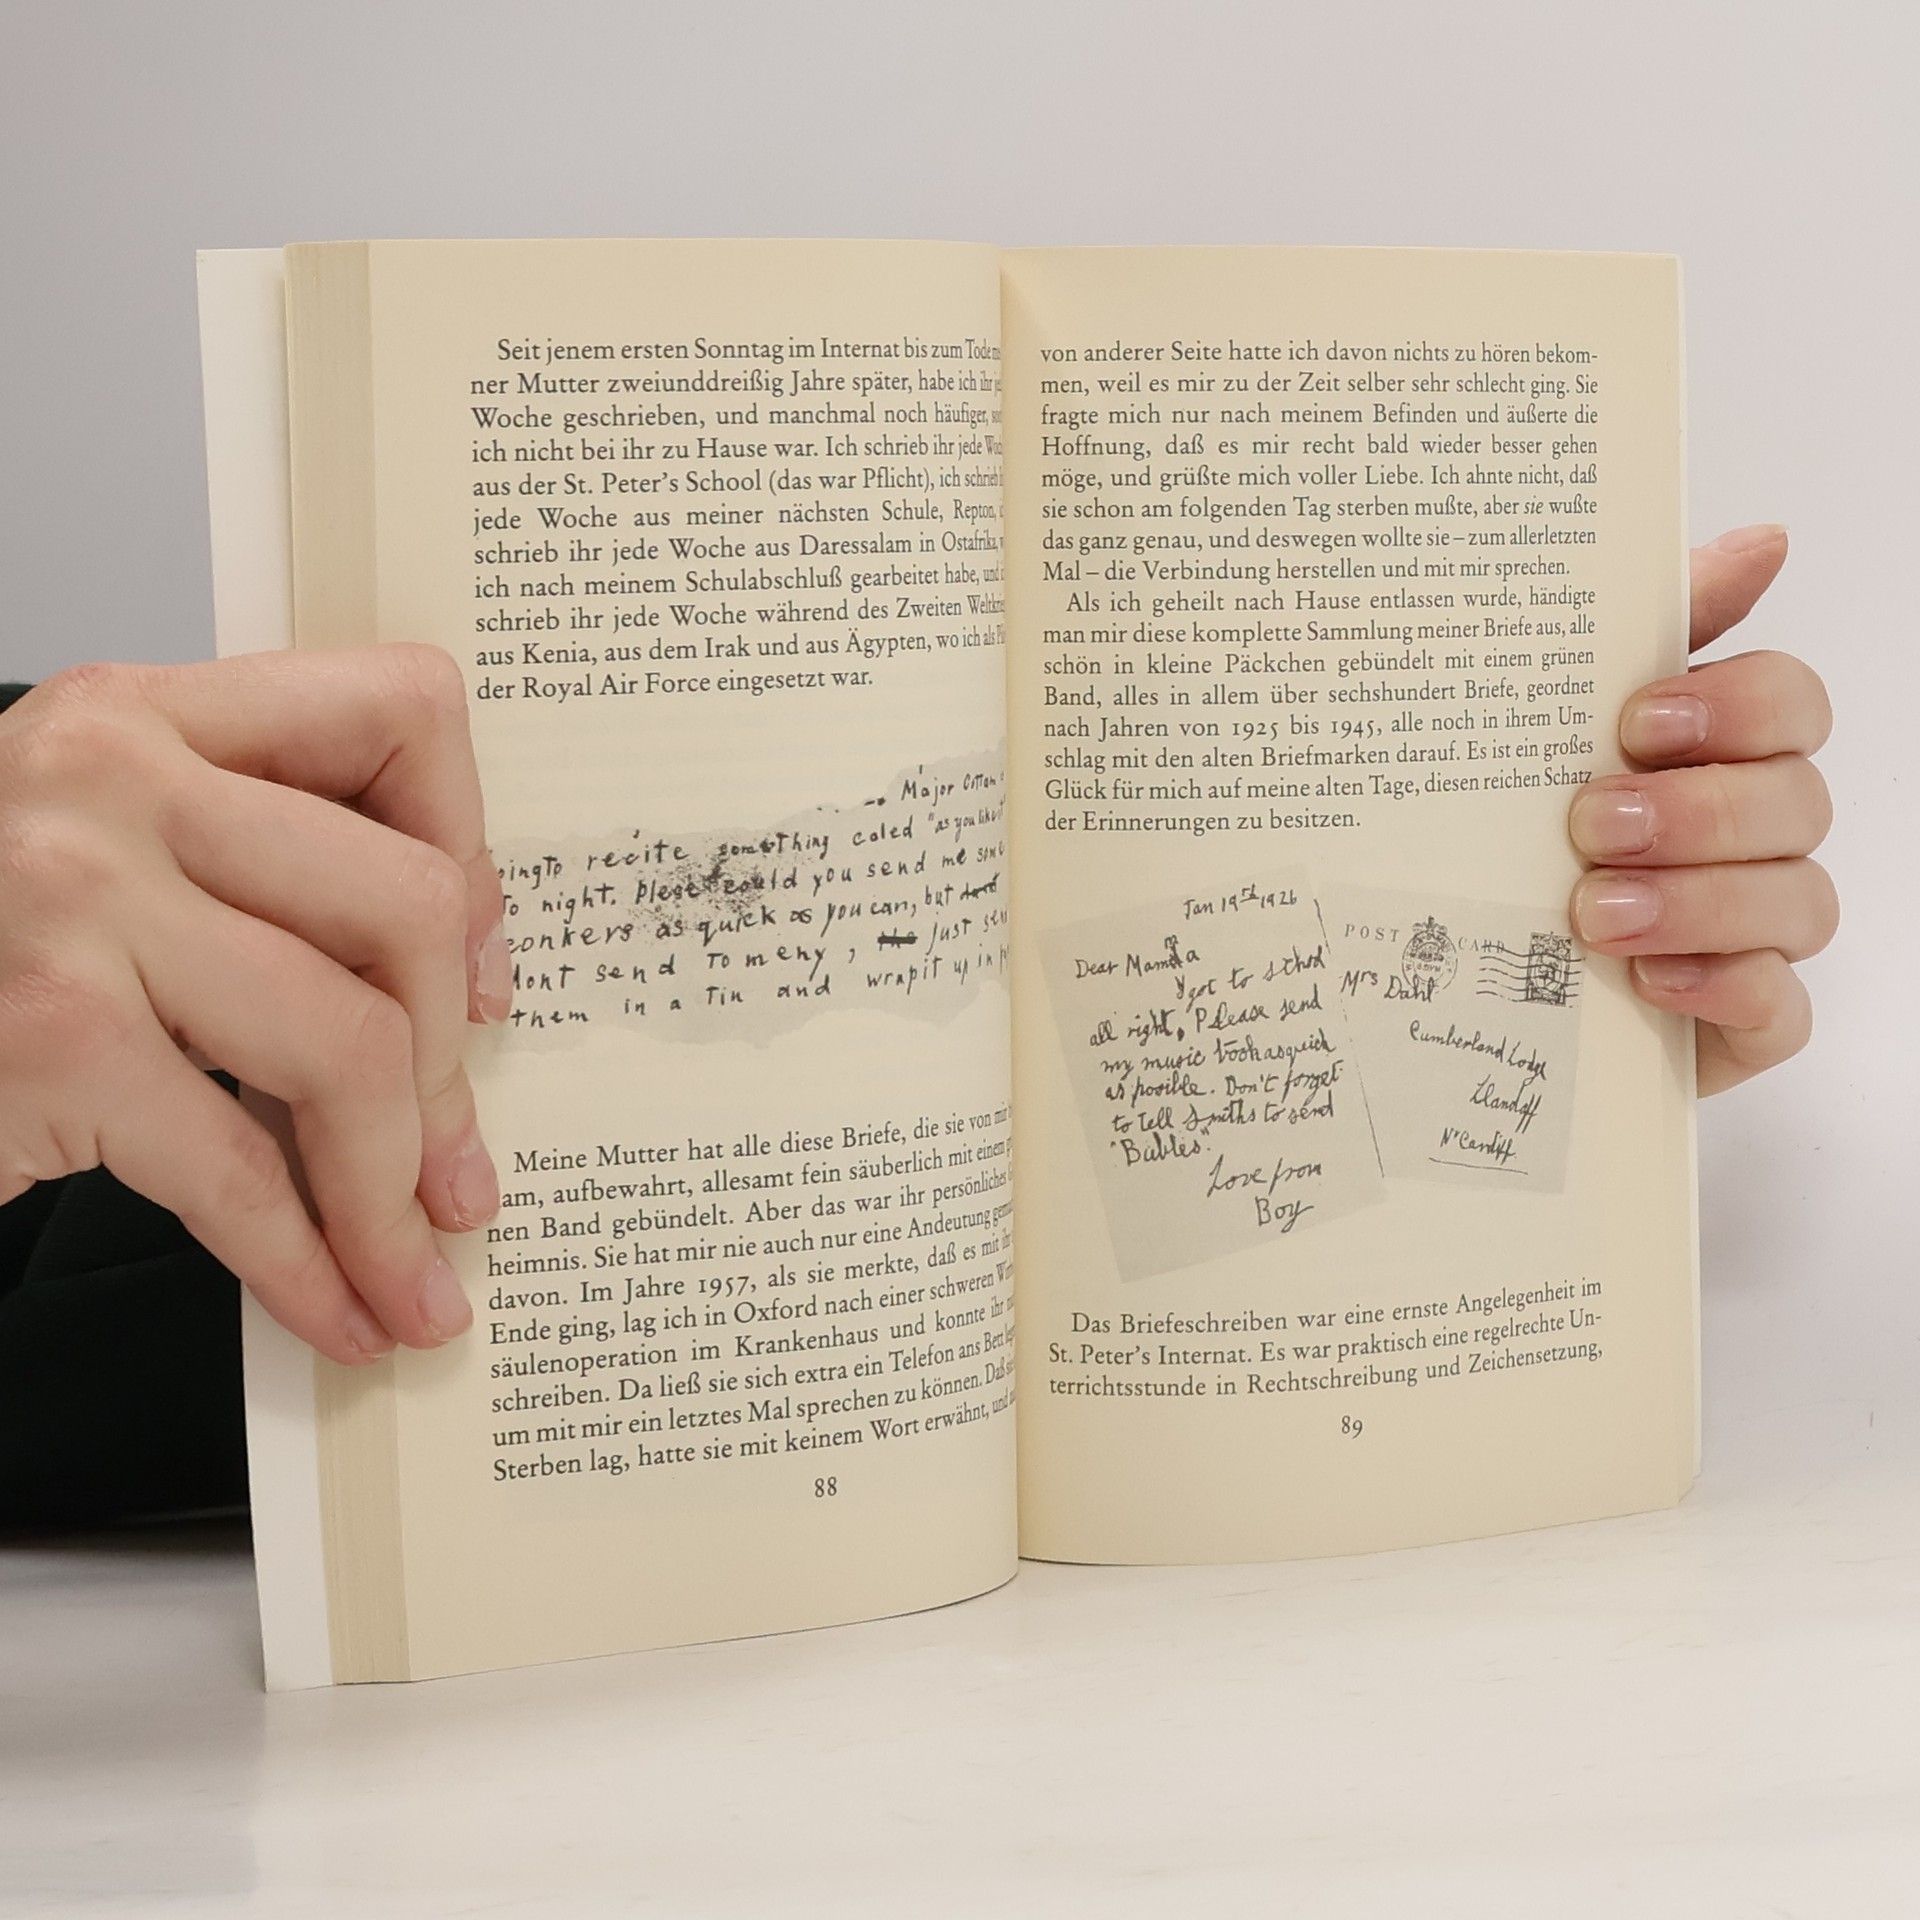 Seit jenem ersten Sonntag im Internat bis zum Tode
ner Mutter zweiunddreißig Jahre später, habe ich ihr
Woche geschrieben, und manchmal noch häufiger,
ich nicht bei ihr zu Hause war. Ich schrieb ihr jede
aus der St. Peter’s School (das war Pflicht), ich schrieb
jede Woche aus meiner nächsten Schule, Repton,
schrieb ihr jede Woche aus Daressalam in Ostafrika,
ich nach meinem Schulabschluß gearbeitet habe, und
schrieb ihr jede Woche während des Zweiten
aus Kenia, aus dem Irak und aus Ägypten, wo ich als
der Royal Air Force eingesetzt war.
Major
recite something caled "as you like
To night. Plese could you send me some
conkers as quick as you can, but
dont send To meny, just
them in a Tin and wrapit up in
Meine Mutter hat alle diese Briefe, die sie von mir
am, aufbewahrt, allesamt fein säuberlich mit einem
nen Band gebündelt. Aber das war ihr persönliches
heimnis. Sie hat mir nie auch nur eine Andeutung
davon. Im Jahre 1957, als sie merkte, daß es mit
Ende ging, lag ich in Oxford nach einer schweren
säulenoperation im Krankenhaus und konnte ihr
schreiben. Da ließ sie sich extra ein Telefon ans Bett
um mit mir ein letztes Mal sprechen zu können. Daß
Sterben lag, hatte sie mit keinem Wort erwähnt, und
88
von anderer Seite hatte ich davon nichts zu hören bekom-
men, weil es mir zu der Zeit selber sehr schlecht ging. Sie
fragte mich nur nach meinem Befinden und äußerte die
Hoffnung, daß es mir recht bald wieder besser gehen
möge, und grüßte mich voller Liebe. Ich ahnte nicht, daß
sie schon am folgenden Tag sterben mußte, aber sie wußte
das ganz genau, und deswegen wollte sie – zum allerletzten
Mal – die Verbindung herstellen und mit mir sprechen.
Als ich geheilt nach Hause entlassen wurde, händigte
man mir diese komplette Sammlung meiner Briefe aus, alle
schön in kleine Päckchen gebündelt mit einem grünen
Band, alles in allem über sechshundert Briefe, geordnet
nach Jahren von 1925 bis 1945, alle noch in ihrem Um-
schlag mit den alten Briefmarken darauf. Es ist ein großes
Glück für mich auf meine alten Tage, diesen reichen Schatz
der Erinnerungen zu besitzen.
Jan 19th 1926
Dear Mama
I got to school
all right. Please send
my music book as quick
as posible. Don't forget
to tell Smiths to send
"Bubles".
Love from
Boy
POST CARD
Mrs Dahl
Cumberland Lodge
Llandaff
Nr Cardiff
Das Briefeschreiben war eine ernste Angelegenheit im
St. Peter’s Internat. Es war praktisch eine regelrechte Un-
terrichtsstunde in Rechtschreibung und Zeichensetzung,
89